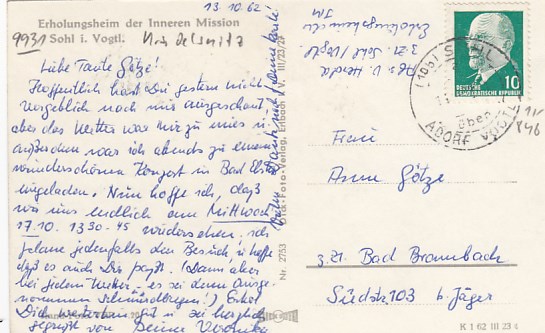 13.10.62
Erholungsheim der Inneren Mission
Sohl i. Vogtl.
9931
Liebe Tante Götze!
Hoffentlich hast Du gestern nicht
vergeblich nach mir ausgeschaut,
aber das Wetter war mir zu mies u.
außerdem war ich abends zu einem
wunderschönen Konzert in Bad Elster
eingeladen. Nun hoffe ich, daß
wir uns endlich am Mittwoch
17.10. 1330-45 wiedersehen. Ich
plane jedenfalls den Besuch, u. hoffe
daß es auch Dir paßt. (Dann aber
bei jedem Wetter - es sei denn ausge-
nommen) Erhol
Dich weiterhin gut u. sei herzlich
gegrüßt von Deiner Veronika
Abs. V.
3.21. Sohl/Vogtl.
Erholungsheim
IM
Foto-Verlag, Erlbach i. V. III/23/24
Nr. 2753
DEUTSCHE
DEMOKRATISCHE REPUBLIK
10
SOHL
über
ADORF VOGTL
Frau
Anna Götze
3.21. Bad Brambach
Südstr. 103 b. Jäger
K 1 62 III 23 4